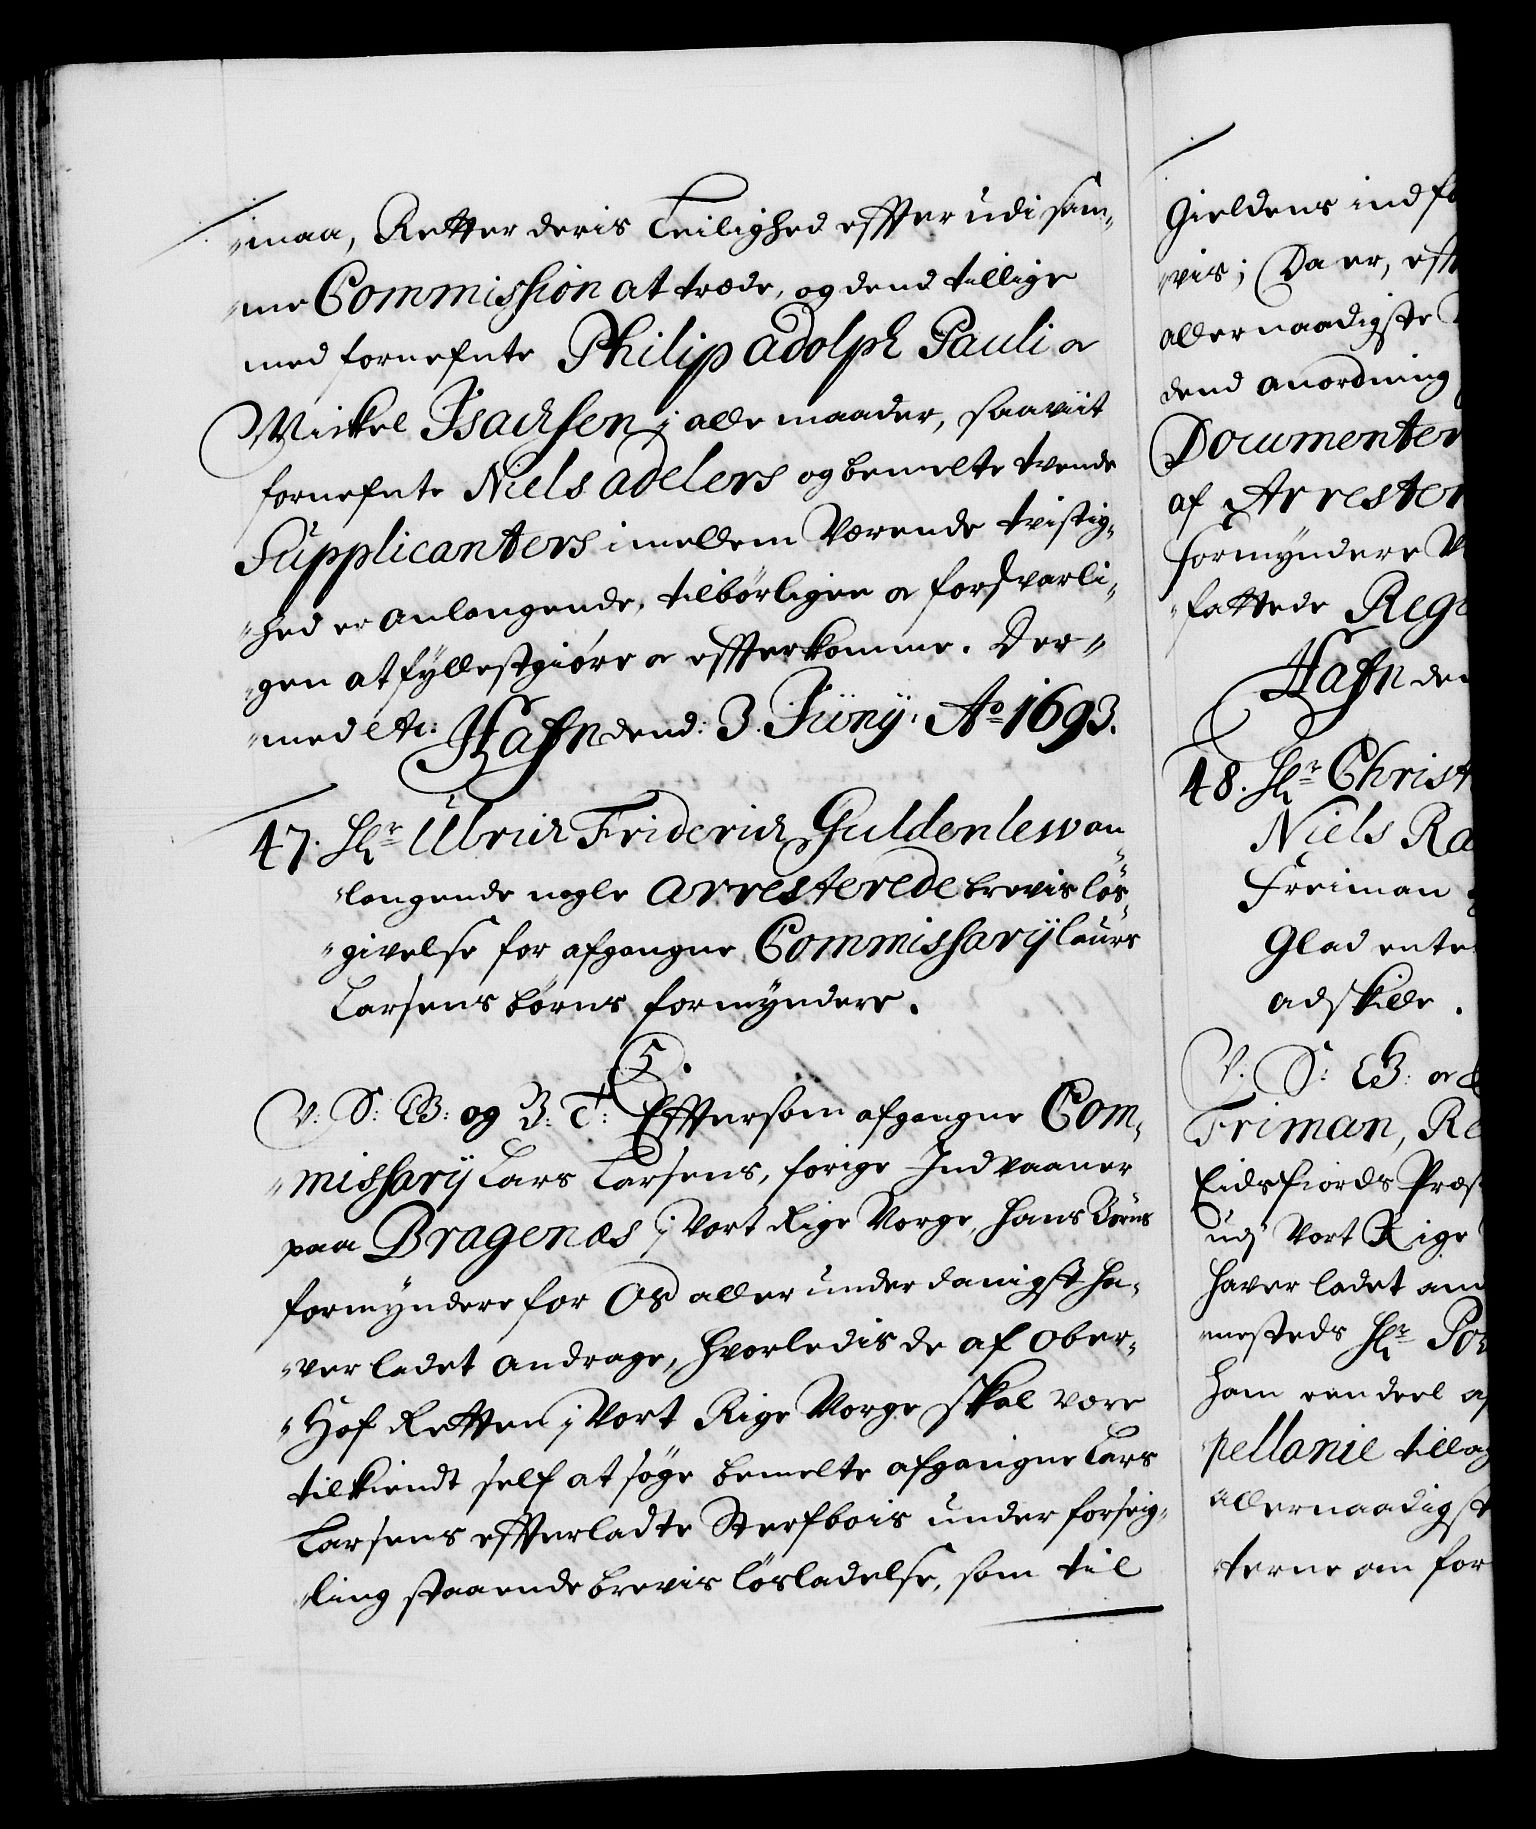 -maa, Retter deris Leilighed effter udi sam-
-me Commission at træde, og dend tillige
med fornefnte Philip Adolph Pauli oc
Mickel Isachsen i alle maader, saaviit
fornefnte Niels Adelers og bemelte tvende
Supplicanters imellem Værende tvistig-
-hed er anlangende, tilbörligen oc forsvarli-
-gen at fyllestgiöre oc effterkomme. Der-
-med etc: Hafn dend: 3. Junÿ. Ao 1693.
47. Hr Ulrich Friderich Guldenlew an-
-langende nogle arresterede brevis lös-
-givelse for afgangne Commissarÿ Laurs
Larsens börns formyndere.
C5.
V: S: G B: og B: T: Efftersom afgangne Com-
-missarÿ Lars Larsens, forige Indvaaner
paa Bragenæs i Vort Rige Norge, hans Börns
formyndere for Os allerunderdanigst ha-
-ver ladet andrage, hvorledis de af Ober-
-Hof Retten i Vort Rige Norge skal være
tilkiendt self at söge bemelte afgangne Lars
Larsens effterladte Sterfbois under forseig-
-ling staaende brevis lösladelse, som til
Gieldens ind
-vis; Da er,
allernaadigste
dend anordning
Documenter
af Arrester
formyndere
-fattede
Hafn den
48. Hr Christ
Niels Ra
Freiman
Glad ente
adskille.
V. S: G B: oc
Friman, Re
Eidsfiords Præs
udj Vort Rige
haver ladet an
-mesteds Hr Po
ham een deel af
pellanie tillag
allernaadigst
-terne om for